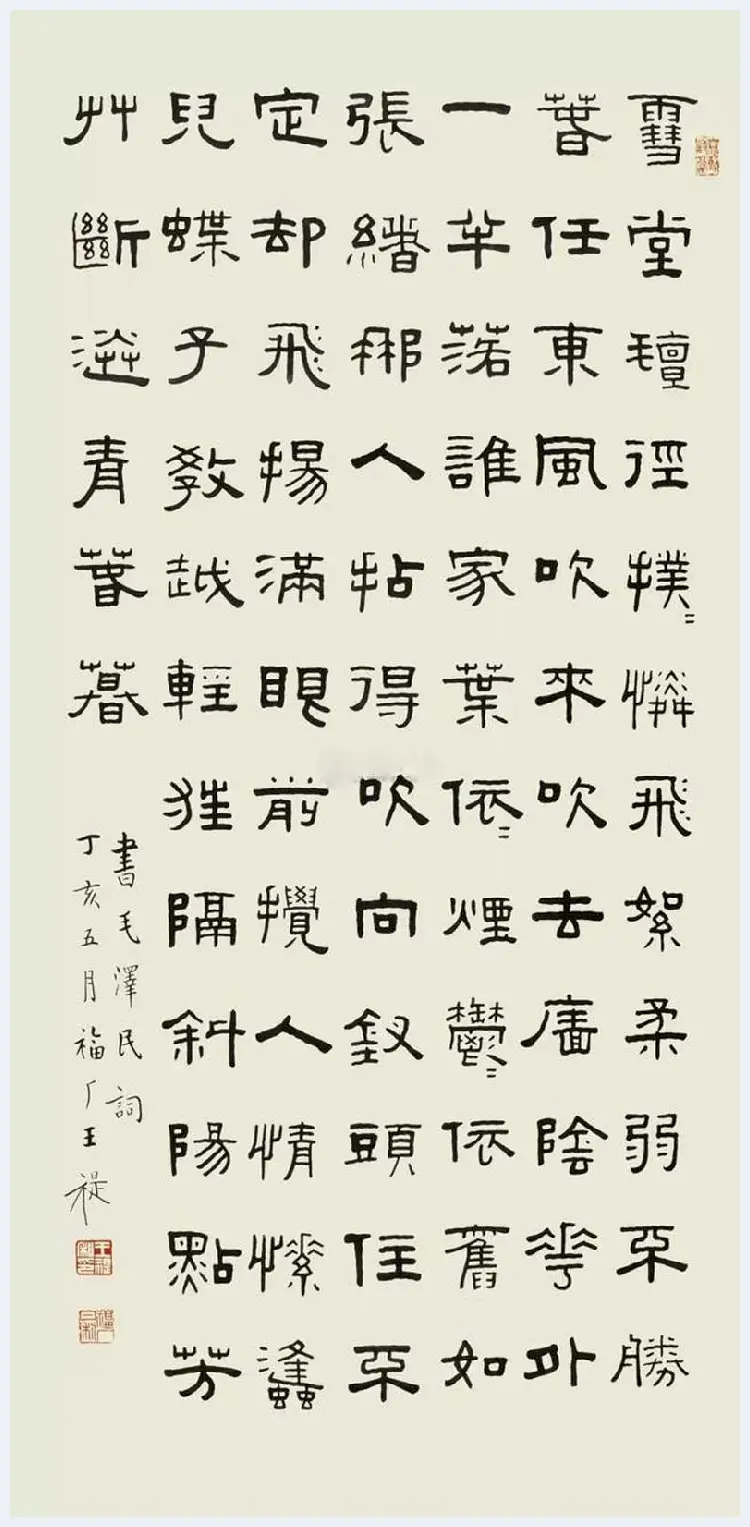 雪堂氊徑撲〻憐飛絮柔弱不勝
春任東風吹來吹去廧陰花外
一半落誰家葉依〻煙鬱〻依舊如
張緒那人拈得吹向釵頭住不
定却飛揚滿眼前攪人情愫蜂
兒蝶子教越輕狂隔斜陽點芳
艸斷送青春暮
書毛澤民詞
丁亥五月福厂王禔